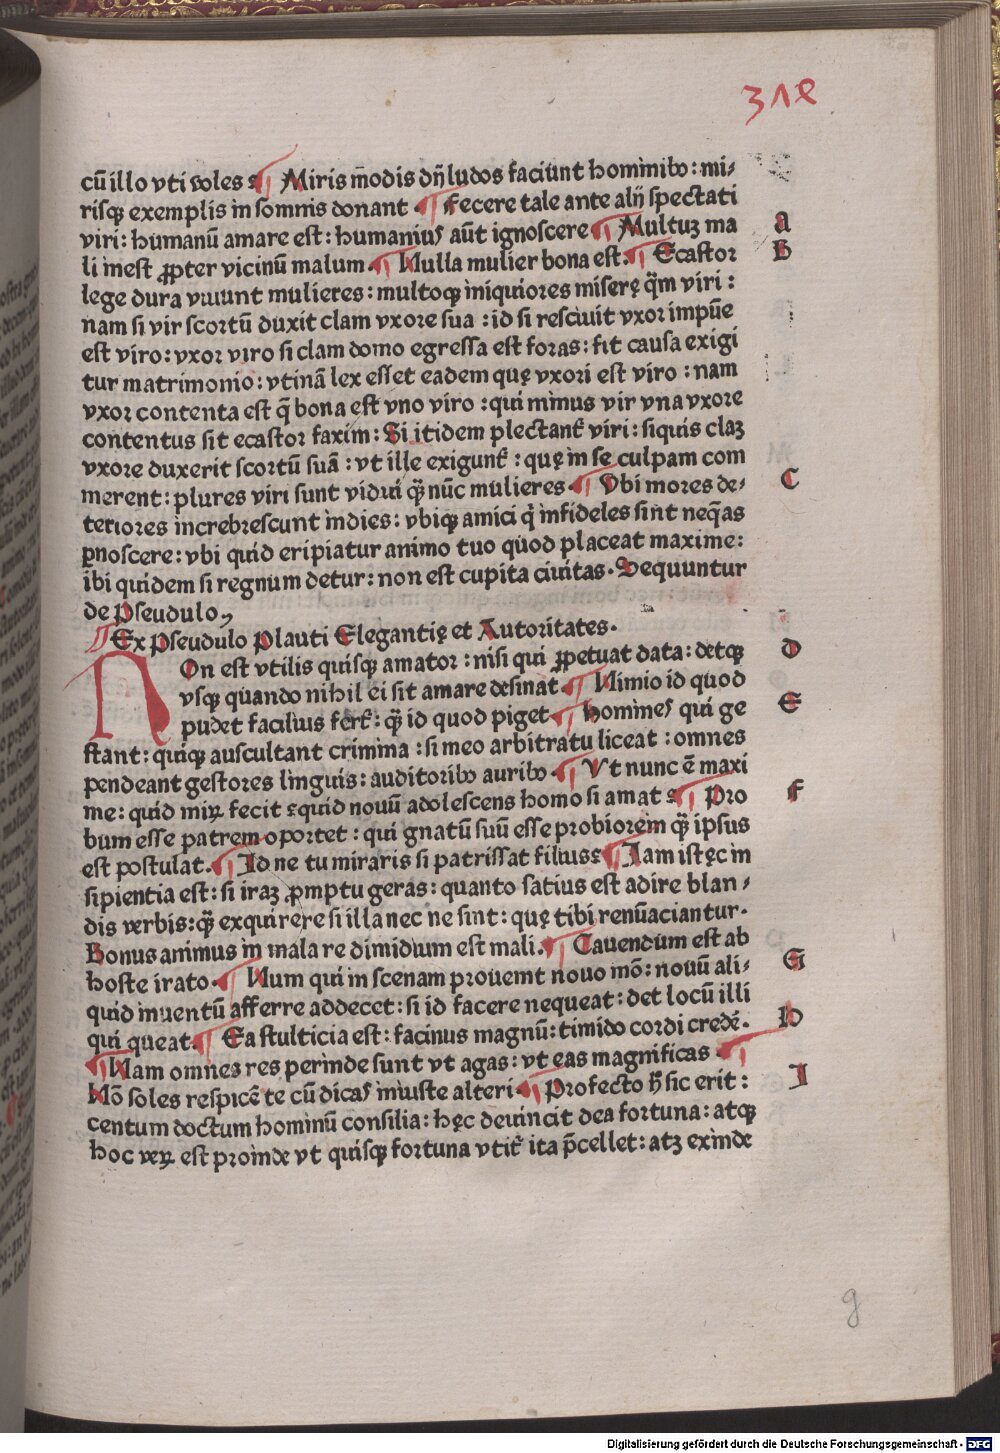 318
cū illo vti voles ⁊ ¶ Miris m̄odis dn̄ ludos faciunt hominibꝰ: mi-
risqꝫ exemplis in somnis donant. ¶ Fecere tale ante alij spectati
viri: humanū amare est: humaniꝰ aūt ignoscere ¶ Multuꝫ ma
a
li inest ꝓpter vicinū malum. ¶ Nulla mulier bona est. ¶ Ecastor
B
lege dura viuunt mulieres: multoqꝫ iniquiores miserę q̈m viri:
nam si vir scortū duxit clam vxore sua: id si resciuit vxor impūe
est viro: vxor viro si clam domo egressa est foras: fit causa exigi
tur matrimonio: vtinā lex esset eadem quę vxori est viro: nam
vxor contenta est q̄ bona est vno viro: qui minus vir vna vxore
contentus sit ecastor faxim: Si itidem plectant᷑ viri: siquis claꝫ
vxore duxerit scortū suā: vt ille exigunt᷑: quę in se culpam com
merent: plures viri sunt vidui q̈ꝫ nūc mulieres. ¶ Vbi mores de-
C
teriores increbrescunt indies: vbiqꝫ amici q̇ infideles sint neq̄as
ꝑnoscere: vbi quid eripiatur animo tuo quod placeat maxime:
ibi quidem si regnum detur: non est cupita ciuitas. Sequuntur
de Pseudulo,
¶ Ex Pseudulo Plauti Elegantię et Autoritates.
NOn est vtilis quisqꝫ amator: nisi qui ꝓpetuat data: detqꝫ
D
vsqꝫ quando nihil ei sit amare desinat. ¶ Nimio id quod
pudet facilius fert᷑: q̈ꝫ id quod piget. ¶ Homineſ qui ge
E
stant: quiqꝫ auscultant crimina: si meo arbitratu liceat: omnes
pendeant gestores linguis: auditoribꝰ auribꝰ. ¶ Vt nunc ē maxi
me: quid miꝝ fecit ⁊ quid nouū adolescens homo si amat ⁊ ¶ Pro
F
bum esse patrem oportet: qui gnatū suū esse probiorem q̈ꝫ ipsus
est postulat. ¶ Id ne tu miraris si patrissat filius⁊ ¶ Iam istęc in
sipientia est: si iraꝫ ꝓmptu geras: quanto satius est adire blan-
dis verbis: q̈ꝫ exquirere si illa nec ne sint: quę tibi renūaciantur.
Bonus animus in mala re dimidium est mali. ¶ Cauendum est ab
hoste irato. ¶ Num qui in scenam prouemt nouo mō: nouū ali-
G
quid inuentū afferre addecet: si id facere nequeat: det locū illi
qui queat. ¶ Ea stulticia est: facinus magnū: timido cordi credē.
H
¶ Nam omneꝫ res perinde sunt vt agas: vt eas magnificas. ¶
Nō soles respicēte cū dicaſ iniuste alteri. ¶ Profecto h̄ sic erit:
I
centum doctum hominū consilia: hęc deuincit dea fortuna: atqꝫ
hoc veꝝ est proinde vt quisqꝫ fortuna vtit᷑ ita p̄cellet: atꝫ exinde
g
Digitalisierung gefördert durch die Deutsche Forschungsgemeinschaft - DFG